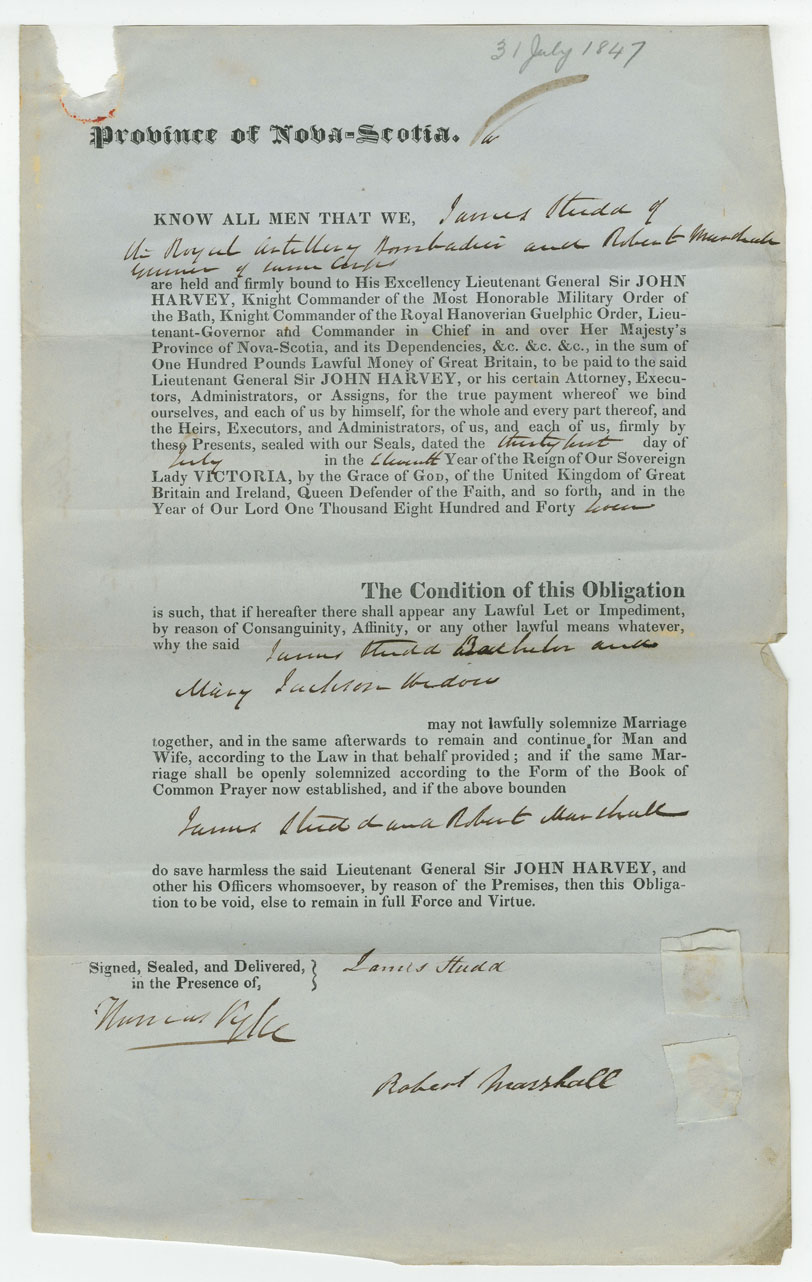 31 July 1847
Province of Nova-Scotia.
KNOW ALL MEN THAT WE, James Studd of
the Royal Artillery Bombadier and Robert Marshall
Gunner of same Corps
are held and firmly bound to His Excellency Lieutenant General Sir JOHN
HARVEY, Knight Commander of the Most Honorable Military Order of
the Bath, Knight Commander of the Royal Hanoverian Guelphic Order, Lieu-
tenant-Governor and Commander in Chief in and over Her Majesty's
Province of Nova-Scotia, and its Dependencies, &c. &c. &c., in the sum of
One Hundred Pounds Lawful Money of Great Britain, to be paid to the said
Lieutenant General Sir JOHN HARVEY, or his certain Attorney, Execu-
tors, Administrators, or Assigns, for the true payment whereof we bind
ourselves, and each of us by himself, for the whole and every part thereof, and
the Heirs, Executors, and Administrators, of us, and each of us, firmly by
these Presents, sealed with our Seals, dated the thirty first day of
July in the Eleventh Year of the Reign of Our Sovereign
Lady VICTORIA, by the Grace of GOD, of the United Kingdom of Great
Britain and Ireland, Queen Defender of the Faith, and so forth, and in the
Year of Our Lord One Thousand Eight Hundred and Forty seven
The Condition of this Obligation
is such, that if hereafter there shall appear any Lawful Let or Impediment,
by reason of Consanguinity, Affinity, or any other lawful means whatever,
why the said James Studd Bachelor and
Mary Jackson Widow
may not lawfully solemnize Marriage
together, and in the same afterwards to remain and continue for Man and
Wife, according to the Law in that behalf provided; and if the same Mar-
riage shall be openly solemnized according to the Form of the Book of
Common Prayer now established, and if the above bounden
James Studd and Robert Marshall
do save harmless the said Lieutenant General Sir JOHN HARVEY, and
other his Officers whomsoever, by reason of the Premises, then this Obliga-
tion to be void, else to remain in full Force and Virtue.
Signed, Sealed, and Delivered, } James Studd
in the Presence of,
Thomas
Robert Marshall